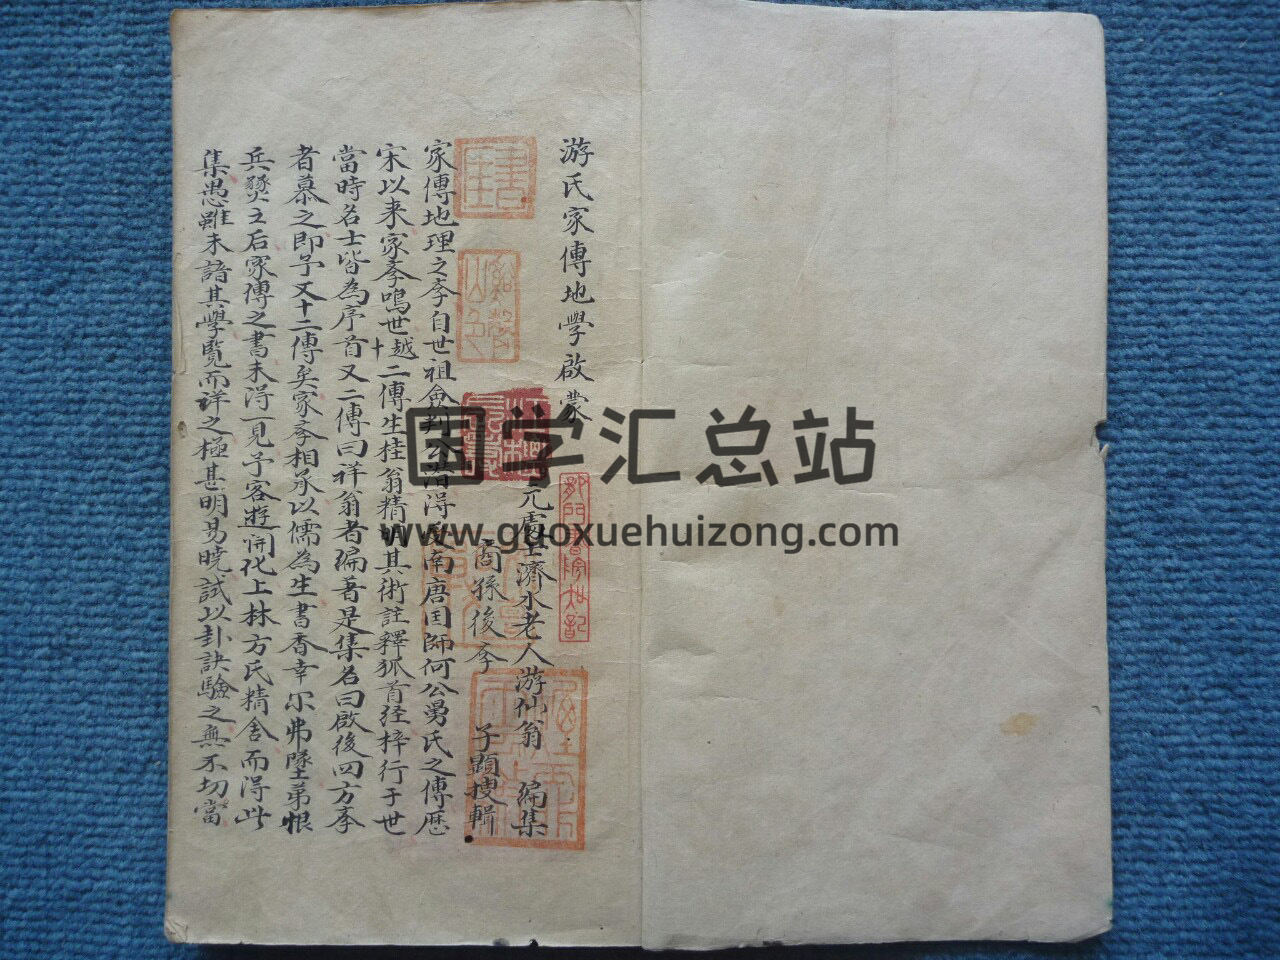 游氏家傳地學啟蒙
元處士濟水老人游仙翁 編集
裔孫後李 子顯搜輯
家傳地理之李自世祖僉判公潛得受南唐国師何公舅氏之傳歷
宋以来家李鳴世越十二傳生桂翁精明其術註釋狐首经梓行于世
當時名士皆為序首又二傳曰祥翁者编著是集名曰啟後四方李
者慕之即予又十二傳矣家李相承以儒為生書香幸尔弗墜弟恨
兵燹之后家傳之書未得一見予客遊開化上林方氏精舍而得此
集愚雖未諳其學覧而詳之極甚明易曉試以卦訣驗之無不切當
国学汇总站
www.guoxuehuizong.com